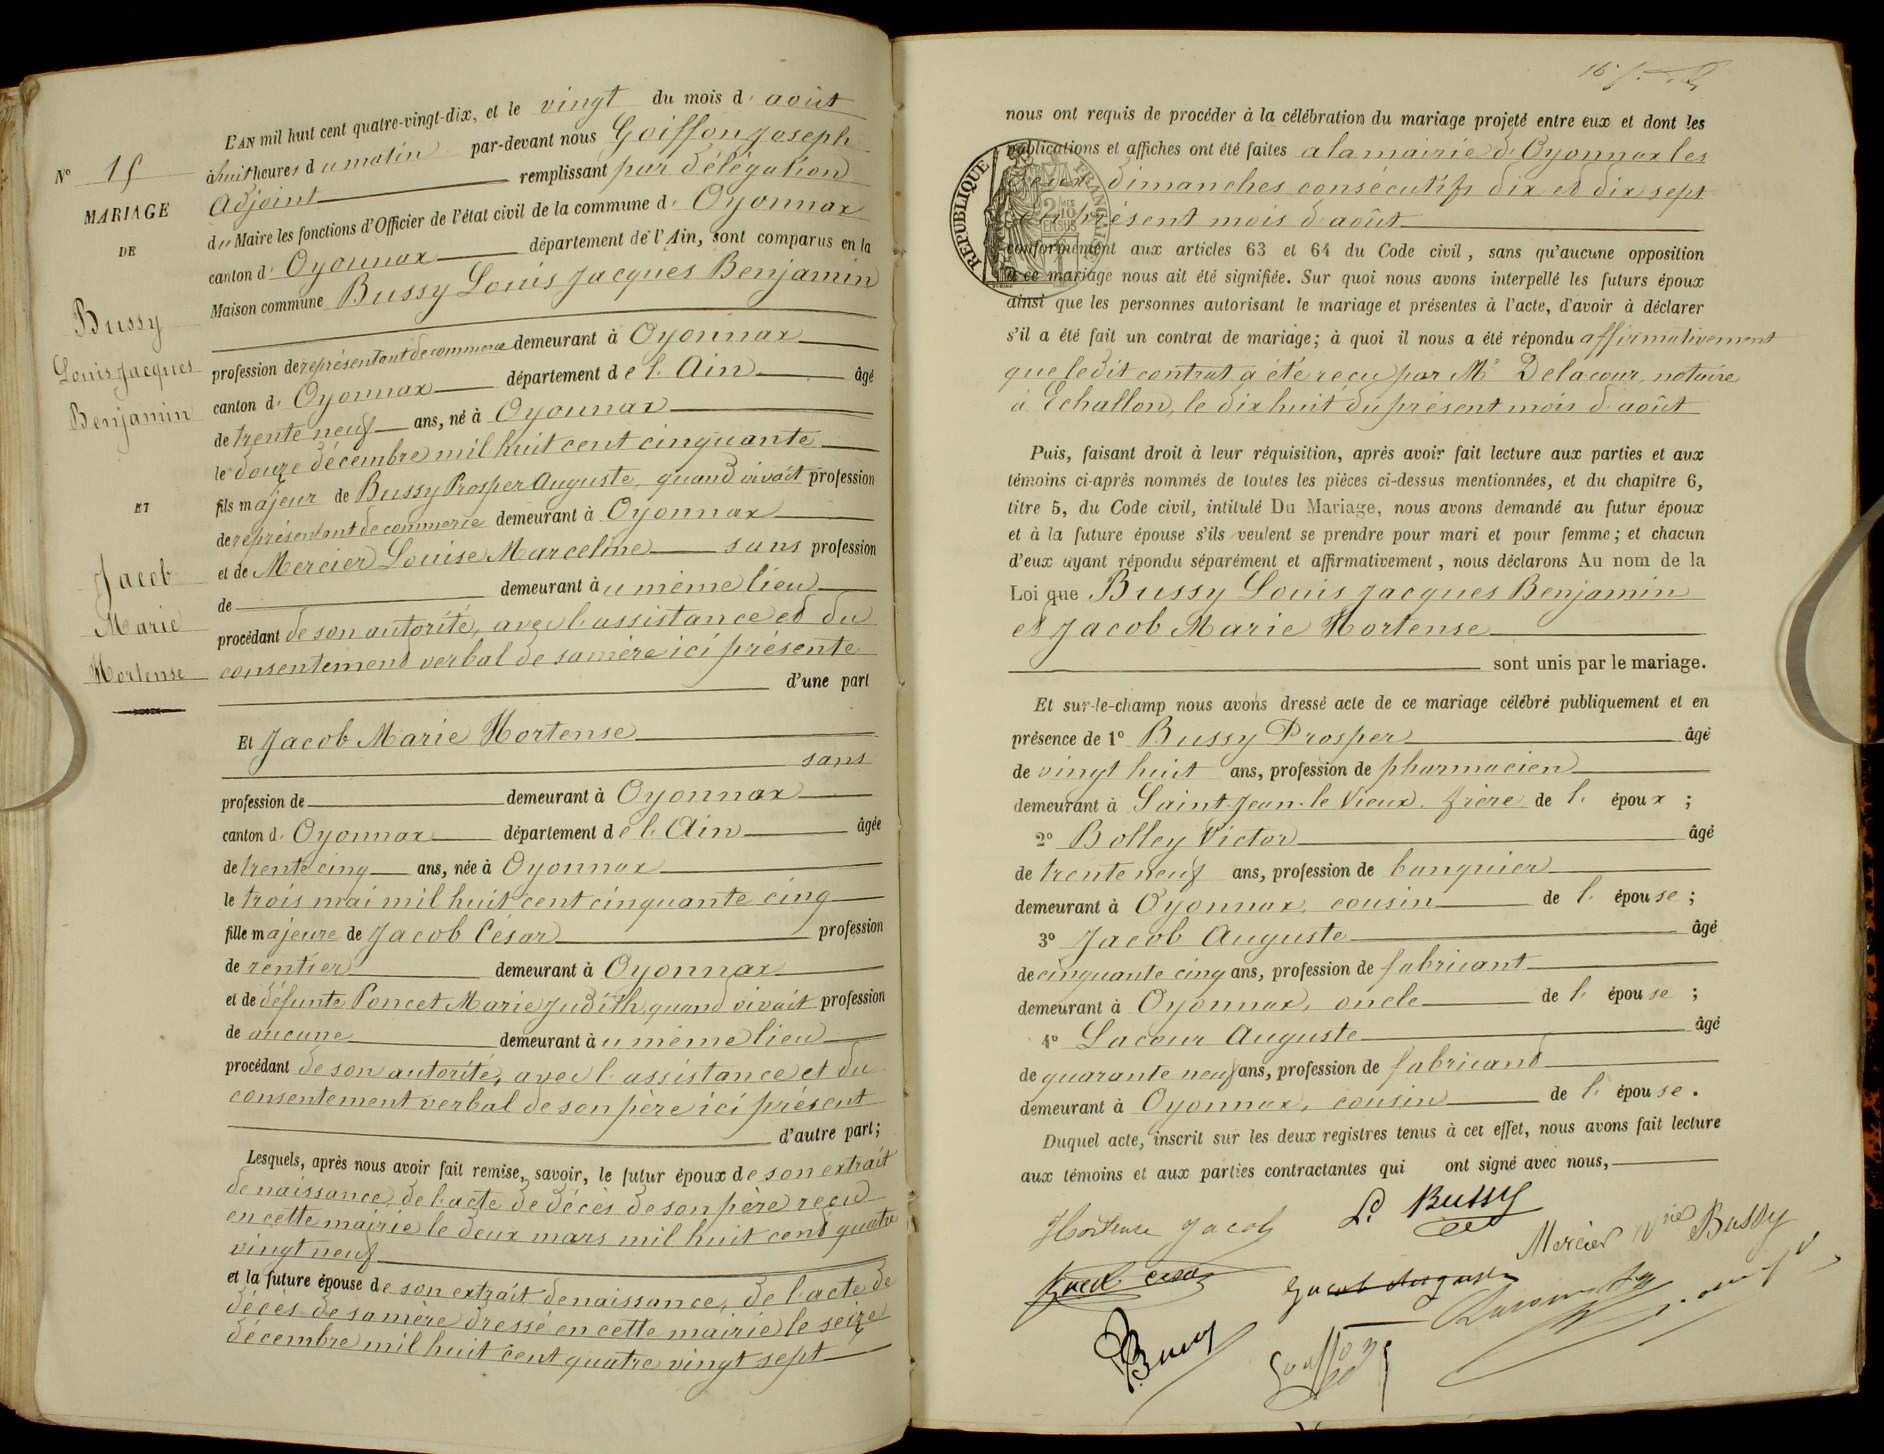 L'AN mil huit cent quatre-vingt-dix, et le vingt du mois d' août
à huit heures du matin par-devant nous Goiffon Joseph
adjoint remplissant par délégation
du Maire les fonctions d'Officier de l'état civil de la commune d' Oyonnax
canton d' Oyonnax département de l'Ain, sont comparus en la
Maison commune Bussy Louis Jacques Benjamin
N° 15
MARIAGE
DE
Bussy
Louis Jacques
Benjamin
ET
Jacob
Marie
Hortense
profession de représentant de commerce demeurant à Oyonnax
canton d' Oyonnax département de l'Ain âgé
de trente neuf ans, né à Oyonnax
le douze décembre mil huit cent cinquante
fils majeur de Bussy Prosper Auguste, quand vivait profession
de représentant de commerce demeurant à Oyonnax
et de Mercier Louise Marceline sans profession
de demeurant au même lieu
procédant de son autorité, avec l'assistance et du
consentement verbal de sa mère ici présente
d'une part
Et Jacob Marie Hortense
sans
profession de demeurant à Oyonnax
canton d' Oyonnax département de l'Ain âgée
de trente cinq ans, née à Oyonnax
le trois mai mil huit cent cinquante cinq
fille majeure de Jacob César profession
de rentier demeurant à Oyonnax
et de défunte Poncet Marie Judith, quand vivait profession
de aucune demeurant au même lieu
procédant de son autorité, avec l'assistance et du
consentement verbal de son père ici présent
d'autre part;
Lesquels, après nous avoir fait remise, savoir, le futur époux de son extrait
de naissance, de l'acte de décès de son père reçu
en cette mairie le deux mars mil huit cent quatre
vingt neuf
et la future épouse de son extrait de naissance, de l'acte de
décès de sa mère dressé en cette mairie le seize
décembre mil huit cent quatre vingt sept
nous ont requis de procéder à la célébration du mariage projeté entre eux et dont les
publications et affiches ont été faites à la mairie d'Oyonnax les
deux dimanches consécutifs dix et dix sept
du présent mois d'août
conformément aux articles 63 et 64 du Code civil, sans qu'aucune opposition
à ce mariage nous ait été signifiée. Sur quoi nous avons interpellé les futurs époux
ainsi que les personnes autorisant le mariage et présentes à l'acte, d'avoir à déclarer
s'il a été fait un contrat de mariage; à quoi il nous a été répondu affirmativement
que ledit contrat a été reçu par Me Delacour, notaire
à Echallon, le dix huit du présent mois d'août
RÉPUBLIQUE FRANÇAISE
Puis, faisant droit à leur réquisition, après avoir fait lecture aux parties et aux
témoins ci-après nommés de toutes les pièces ci-dessus mentionnées, et du chapitre 6,
titre 5, du Code civil, intitulé Du Mariage, nous avons demandé au futur époux
et à la future épouse s'ils veulent se prendre pour mari et pour femme; et chacun
d'eux ayant répondu séparément et affirmativement, nous déclarons Au nom de la
Loi que Bussy Louis Jacques Benjamin
et Jacob Marie Hortense
sont unis par le mariage.
Et sur-le-champ nous avons dressé acte de ce mariage célébré publiquement et en
présence de 1° Bussy Prosper âgé
de vingt huit ans, profession de pharmacien
demeurant à Saint-Jean-le-Vieux, frère de l' époux ;
2° Bolley Victor âgé
de trente neuf ans, profession de banquier
demeurant à Oyonnax, cousin de l' épouse ;
3° Jacob Auguste âgé
de cinquante cinq ans, profession de fabricant
demeurant à Oyonnax, oncle de l' épouse ;
4° Lacour Auguste âgé
de quarante neuf ans, profession de fabricant
demeurant à Oyonnax, cousin de l' épouse.
Duquel acte, inscrit sur les deux registres tenus à cet effet, nous avons fait lecture
aux témoins et aux parties contractantes qui ont signé avec nous,
Hortense Jacob L. Bussy
Mercier Vve Bussy
Jacob César Jacob Auguste
P. Bussy Goiffon